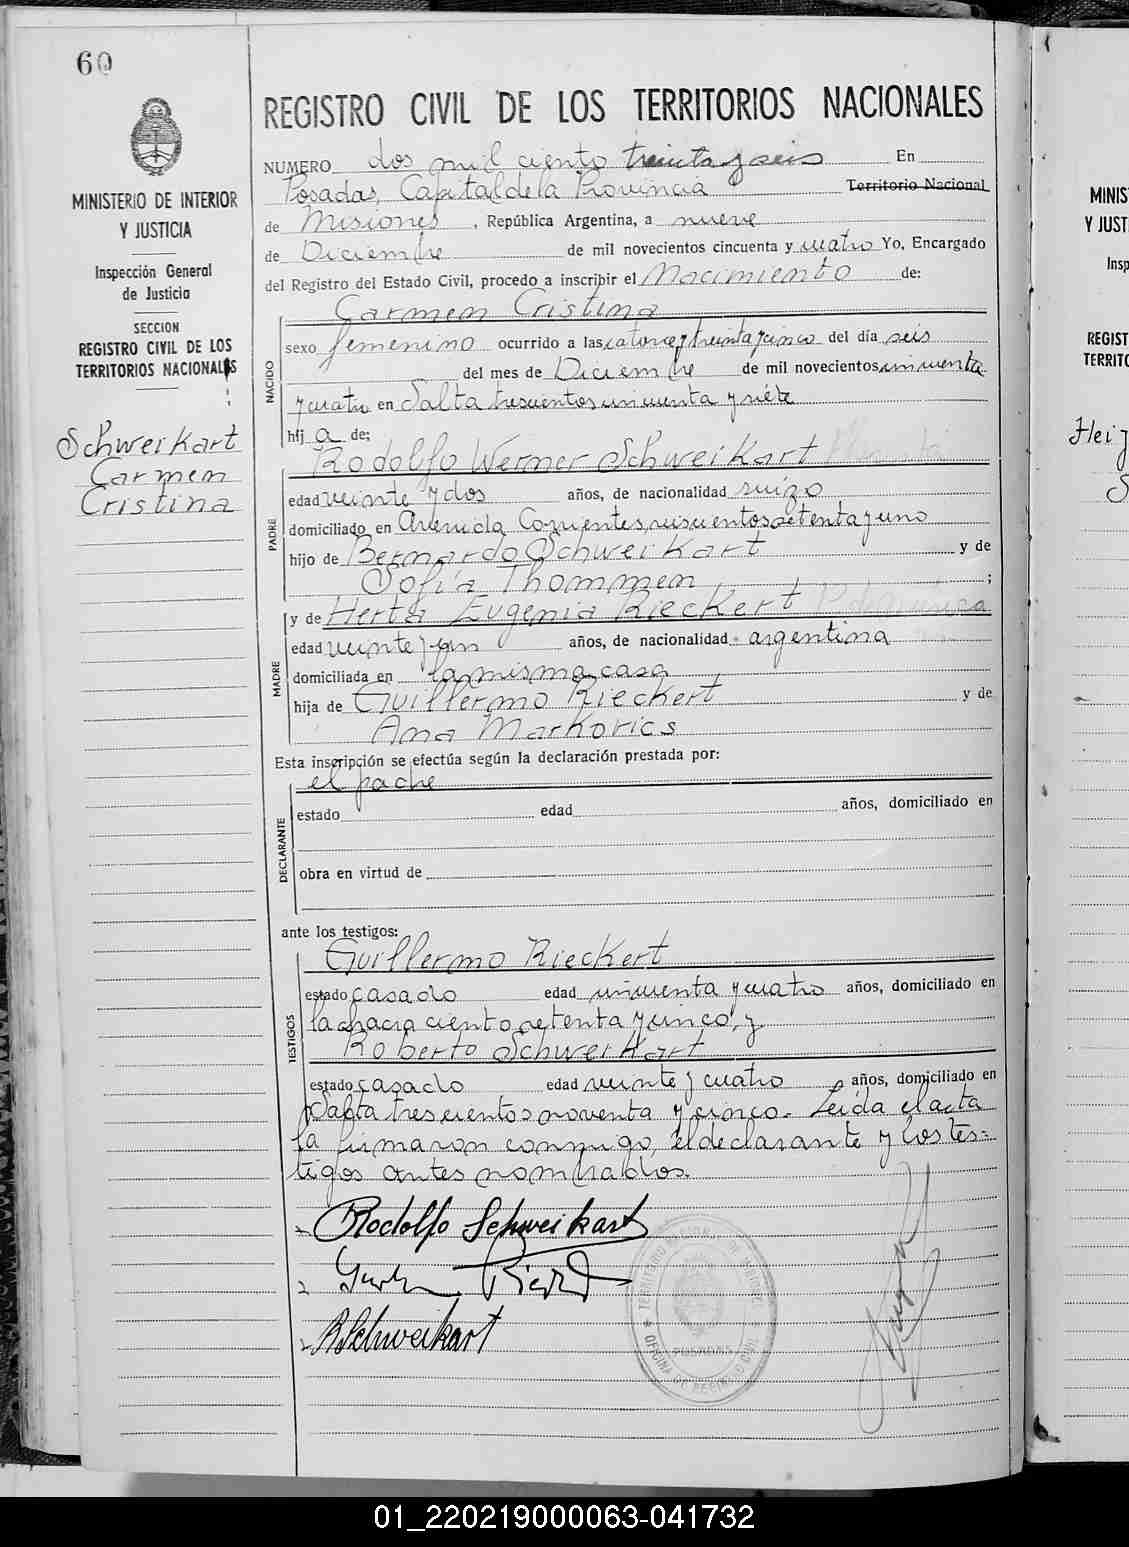 60
REGISTRO CIVIL DE LOS TERRITORIOS NACIONALES
MINISTERIO DE INTERIOR
Y JUSTICIA
Inspección General
de Justicia
SECCION
REGISTRO CIVIL DE LOS
TERRITORIOS NACIONALES
Schweikart
Carmen
Cristina
NUMERO dos mil ciento treinta y seis En
Posadas, Capital de la Provincia Territorio Nacional
de Misiones, República Argentina, a nueve
de Diciembre de mil novecientos cincuenta y cuatro Yo, Encargado
del Registro del Estado Civil, procedo a inscribir el Nacimiento de:
NACIDO
Carmen Cristina
sexo femenino ocurrido a las catorce y treinta y cinco del día seis
del mes de Diciembre de mil novecientos cincuenta
y cuatro en Salta trescientos cincuenta y siete
hij a de:
PADRE
Rodolfo Werner Schweikart
edad veinte y dos años, de nacionalidad suizo
domiciliado en Avenida Corrientes, setenta y uno
hijo de Bernardo Schweikart y de
Sofía Thommen ;
MADRE
y de Herta Eugenia Rieckert
edad veinte y un años, de nacionalidad argentina
domiciliada en la misma casa
hija de Guillermo Rieckert y de
Ana Markovics
Esta inscripción se efectúa según la declaración prestada por:
DECLARANTE
el padre
estado edad años, domiciliado en
obra en virtud de
ante los testigos:
TESTIGOS
Guillermo Rieckert
estado casado edad cincuenta y cuatro años, domiciliado en
la chacra ciento setenta y cinco, y
Roberto Schweikart
estado casado edad veinte y cuatro años, domiciliado en
Salta trescientos noventa y cinco. Leida el acta
la firmaron conmigo, el declarante y los tes=
tigos antes nombrados.
Rodolfo Schweikart
R Schweikart
POSADAS
OFICINA DE REGISTRO CIVIL
MINIS
Y JUST
Insp
REGIST
TERRITO
01_220219000063-041732